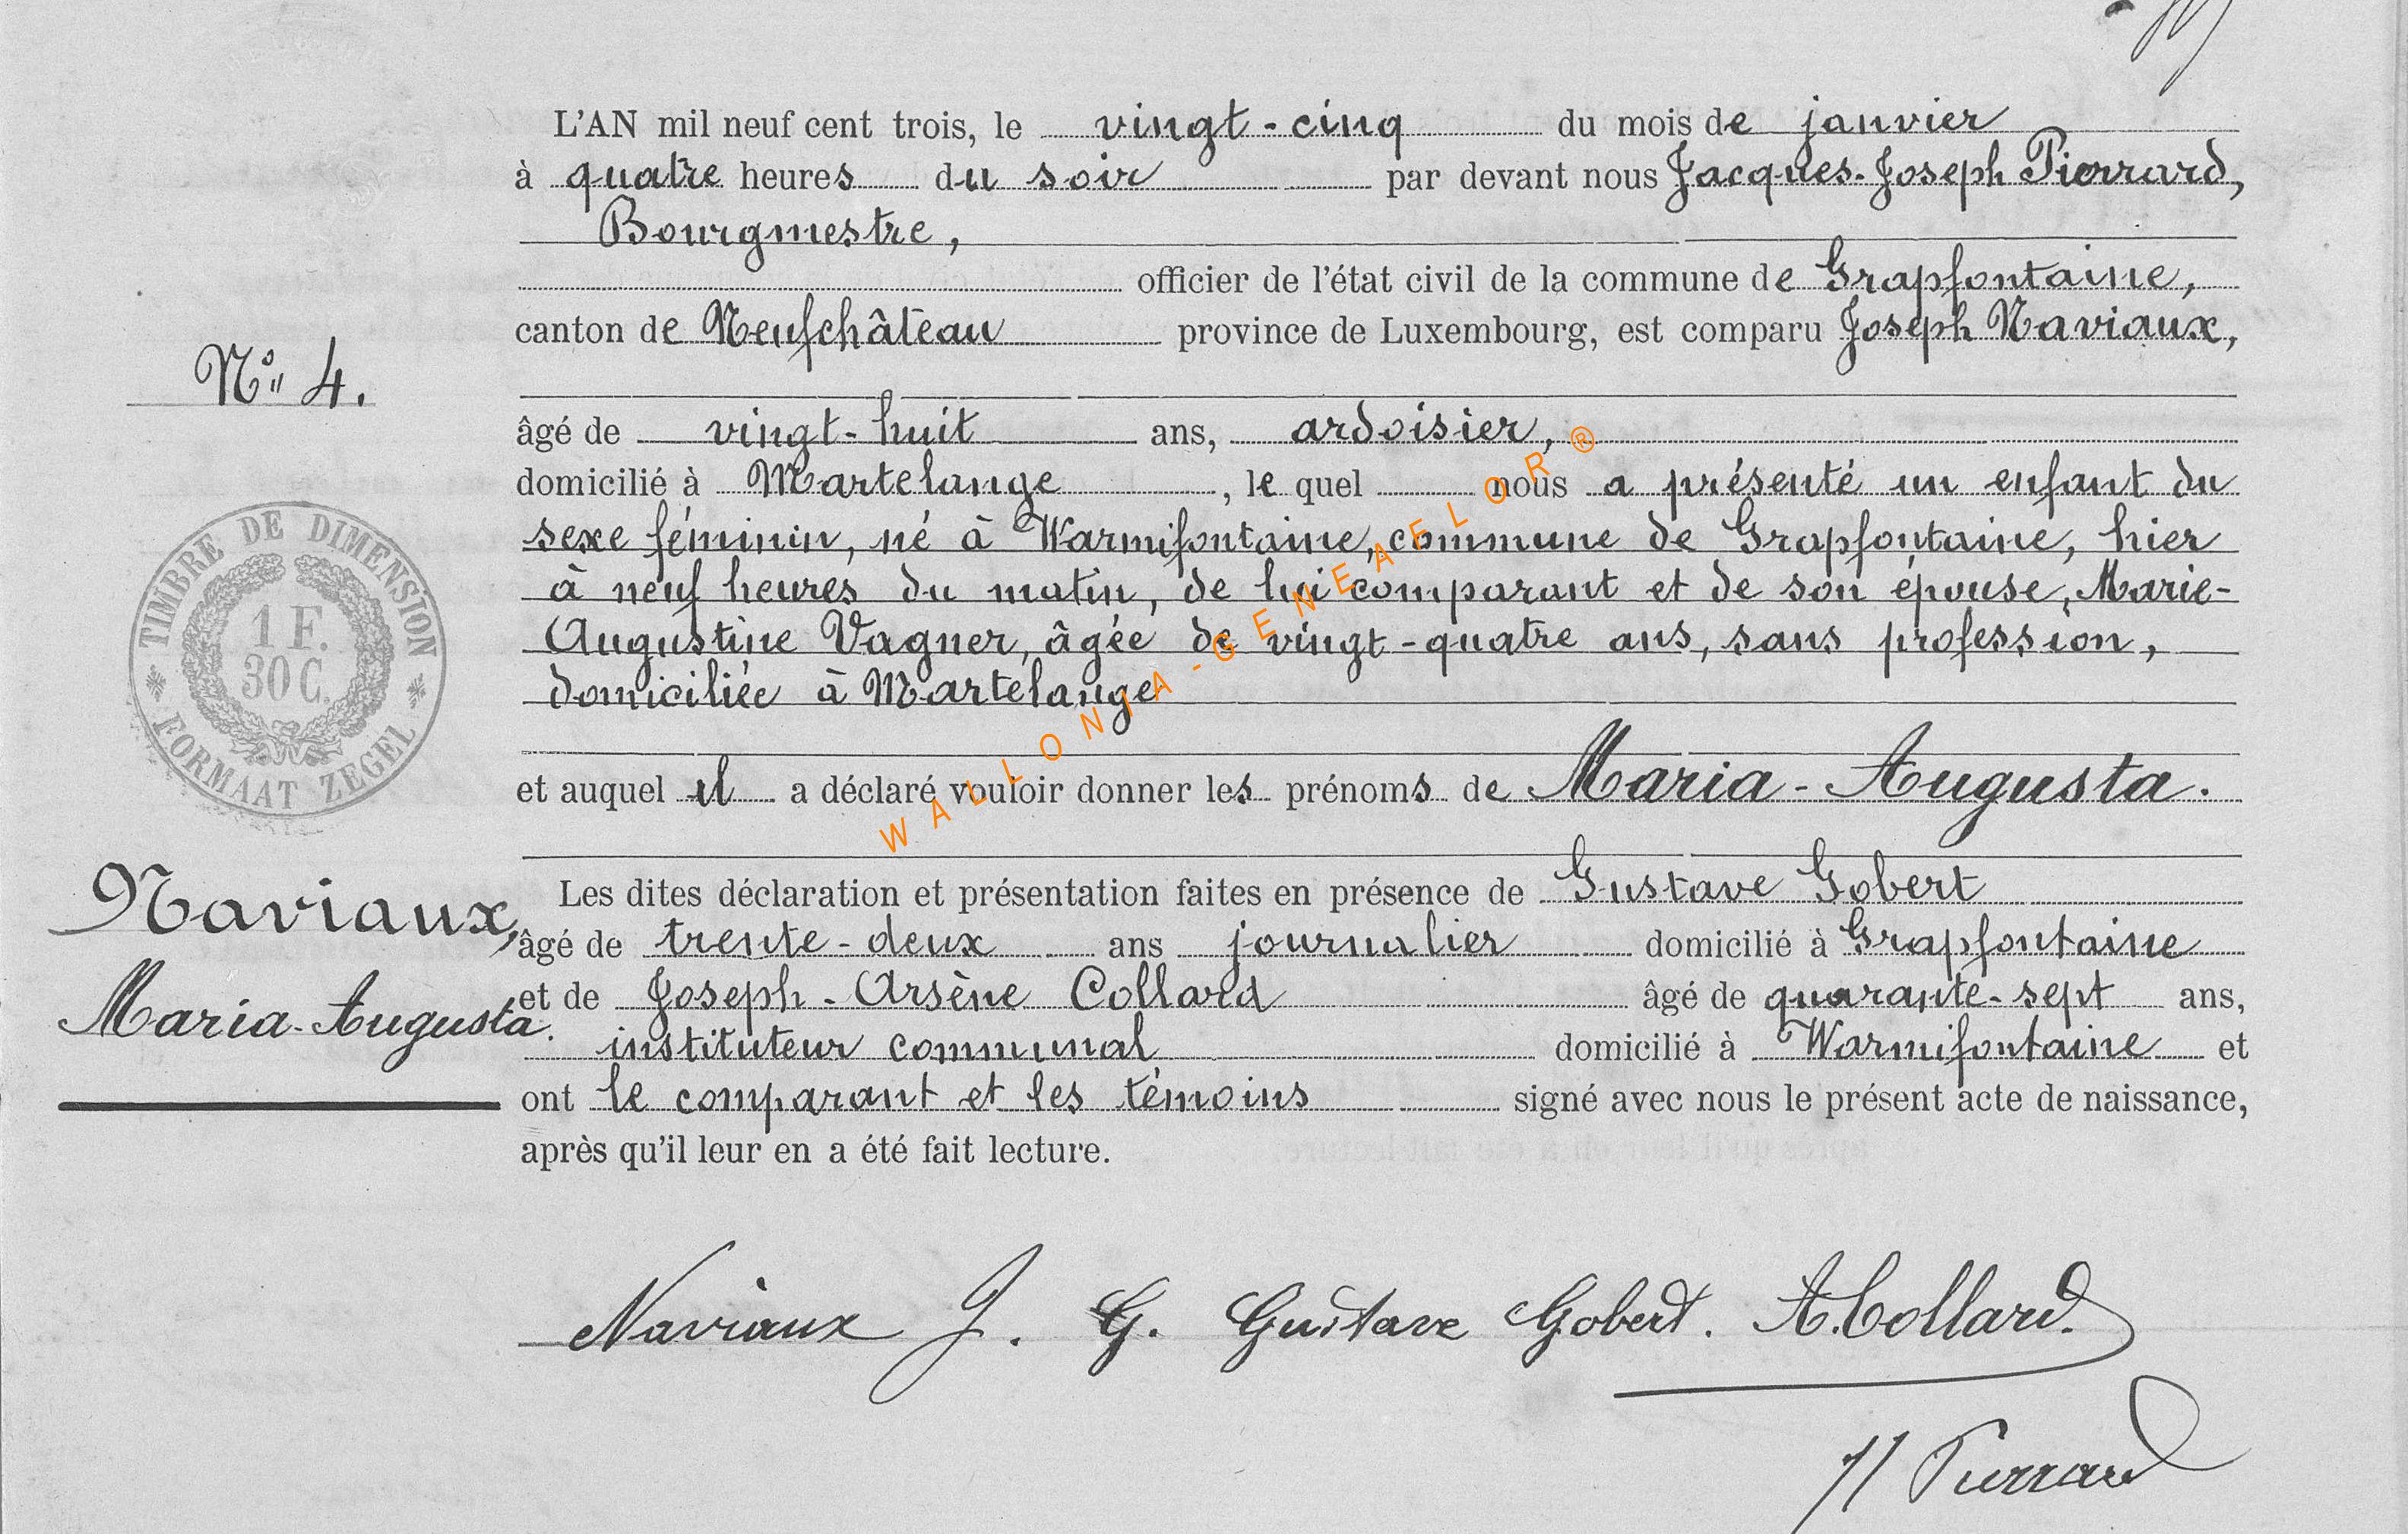 L'AN mil neuf cent trois, le vingt-cinq du mois de janvier
à quatre heures du soir par devant nous Jacques-Joseph Pierrard,
Bourgmestre,
officier de l'état civil de la commune de Grapfontaine,
canton de Neufchâteau province de Luxembourg, est comparu Joseph Naviaux,
No 4.
âgé de vingt-huit ans, ardoisier,
domicilié à Martelange, le quel nous a présenté un enfant du
sexe féminin, né à Warmifontaine, commune de Grapfontaine, hier
à neuf heures du matin, de lui comparant et de son épouse, Marie-
Augustine Vagner, âgée de vingt-quatre ans, sans profession,
domiciliée à Martelange
TIMBRE DE DIMENSION
1 F.
30 C.
FORMAAT ZEGEL
WALLONIA-GENEAELOR®
et auquel il a déclaré vouloir donner les prénoms de Maria-Augusta.
Naviaux,
Maria-Augusta.
Les dites déclaration et présentation faites en présence de Gustave Gobert
âgé de trente-deux ans journalier domicilié à Grapfontaine
et de Joseph-Arsène Collard âgé de quarante-sept ans,
instituteur communal domicilié à Warmifontaine et
ont le comparant et les témoins signé avec nous le présent acte de naissance,
après qu'il leur en a été fait lecture.
Naviaux J. G. Gustave Gobert. A. Collard.
JJ Pierrard